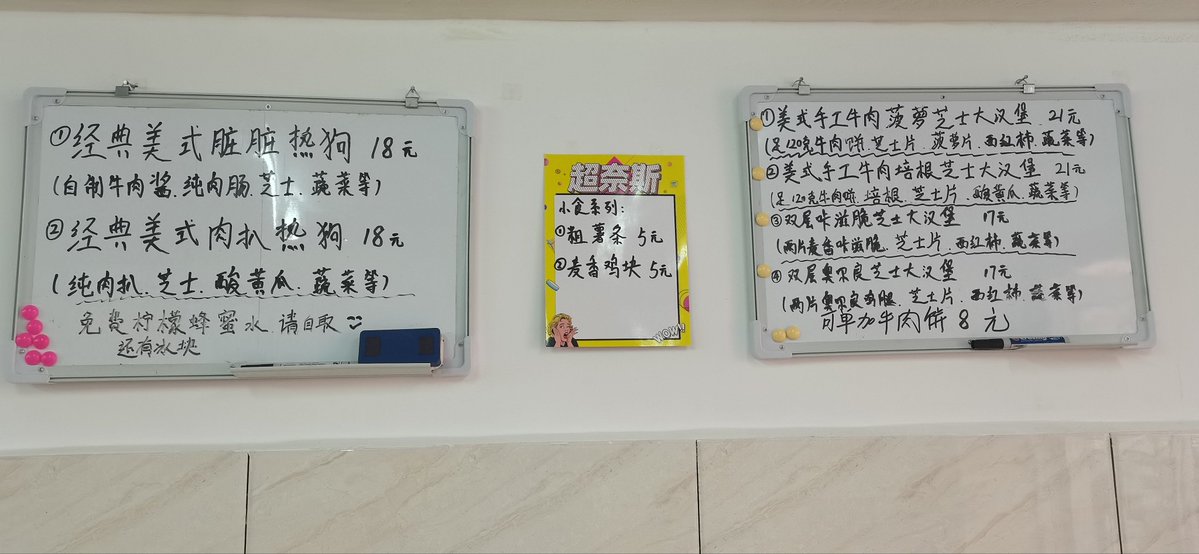 ①经典美式脏脏热狗 18元
(自制牛肉酱.纯肉肠.芝士.蔬菜等)
②经典美式肉扒热狗 18元
(纯肉扒.芝士.酸黄瓜.蔬菜等)
免费柠檬蜂蜜水 请自取
还有冰块
超奈斯
小食系列:
①粗薯条 5元
②麦香鸡块 5元
WOW!
①美式手工牛肉菠萝芝士大汉堡 21元
(足120克牛肉饼.芝士片.菠萝片.西红柿.蔬菜等)
②美式手工牛肉培根芝士大汉堡 21元
(足120克牛肉饼.培根.芝士片.酸黄瓜.蔬菜等)
③双层咔滋脆芝士大汉堡 17元
(两片麦香咔滋脆.芝士片.西红柿.蔬菜等)
④双层奥尔良芝士大汉堡 17元
(两片奥尔良鸡腿.芝士片.西红柿.蔬菜等)
可单加牛肉饼 8元